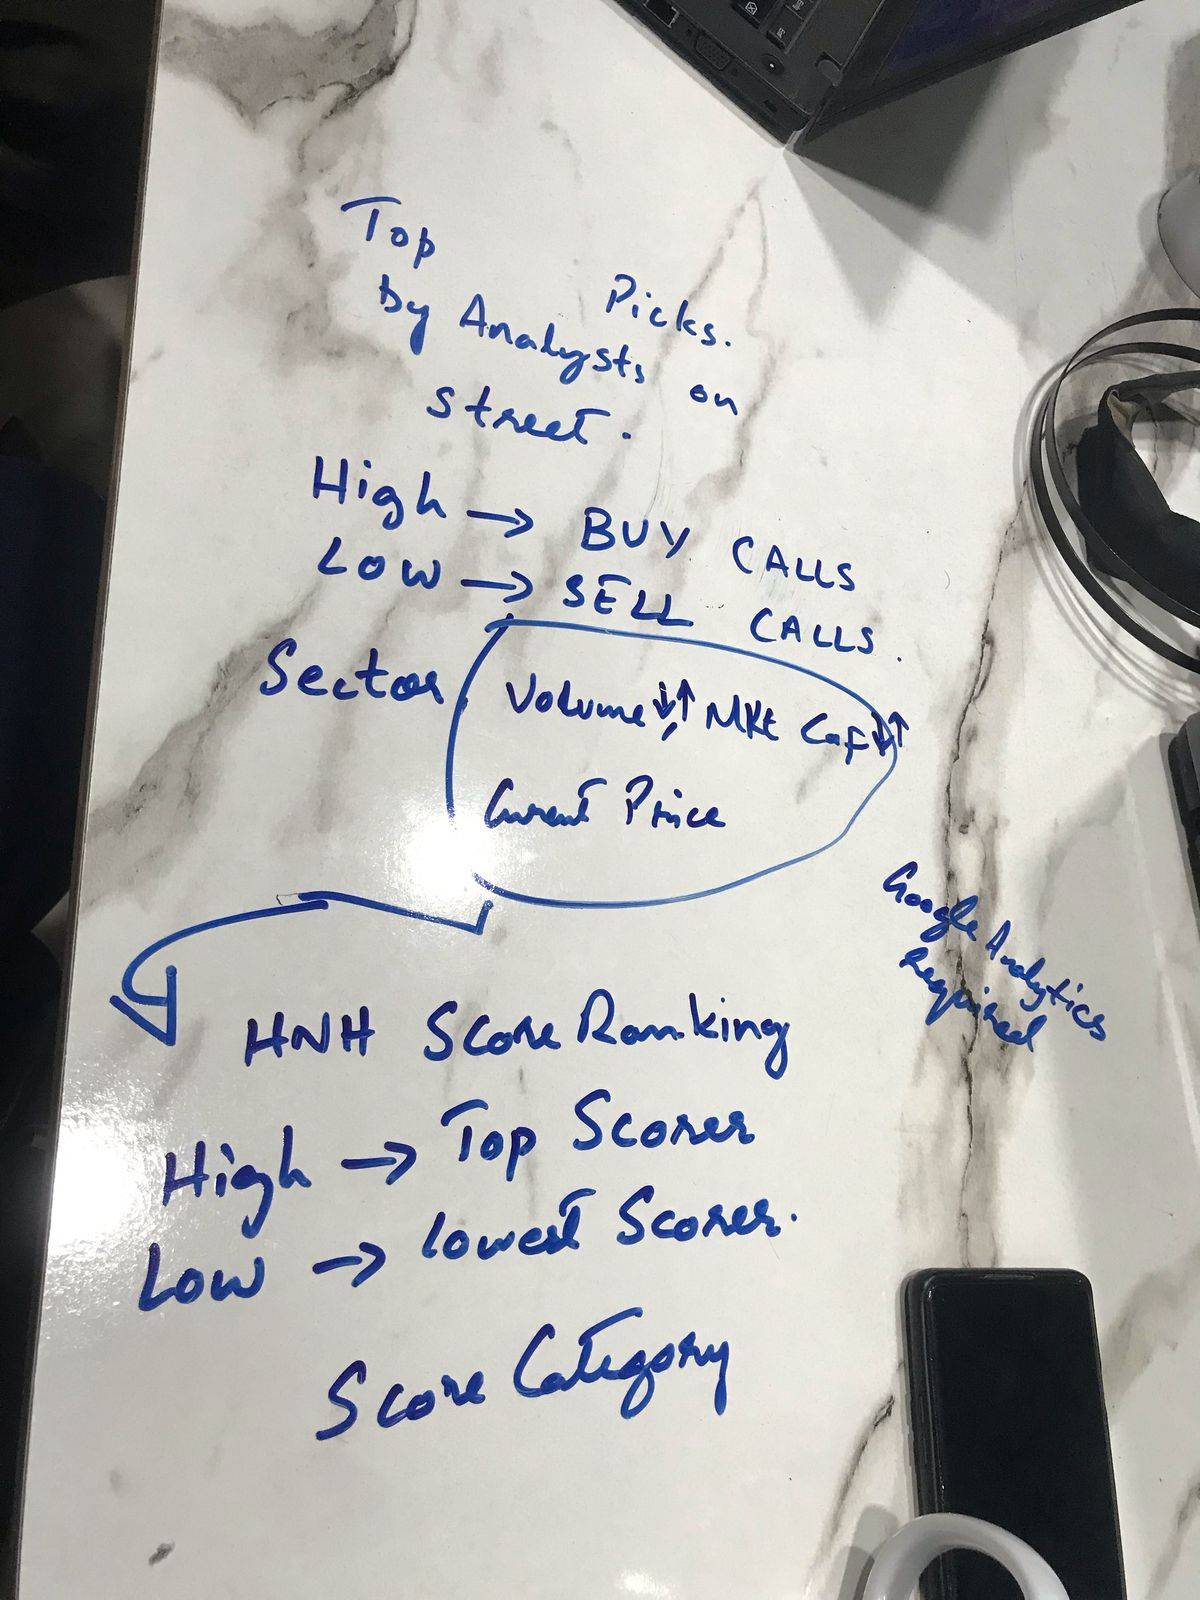 Top Picks.
by Analysts on
street.
High → BUY CALLS
Low → SELL CALLS.
Sector
Volume ↓↑, Mkt Cap ↓↑
Current Price
Google Analytics
Required
HNH Score Ranking
High → Top Scorer
Low → lowest Scorer.
Score Category